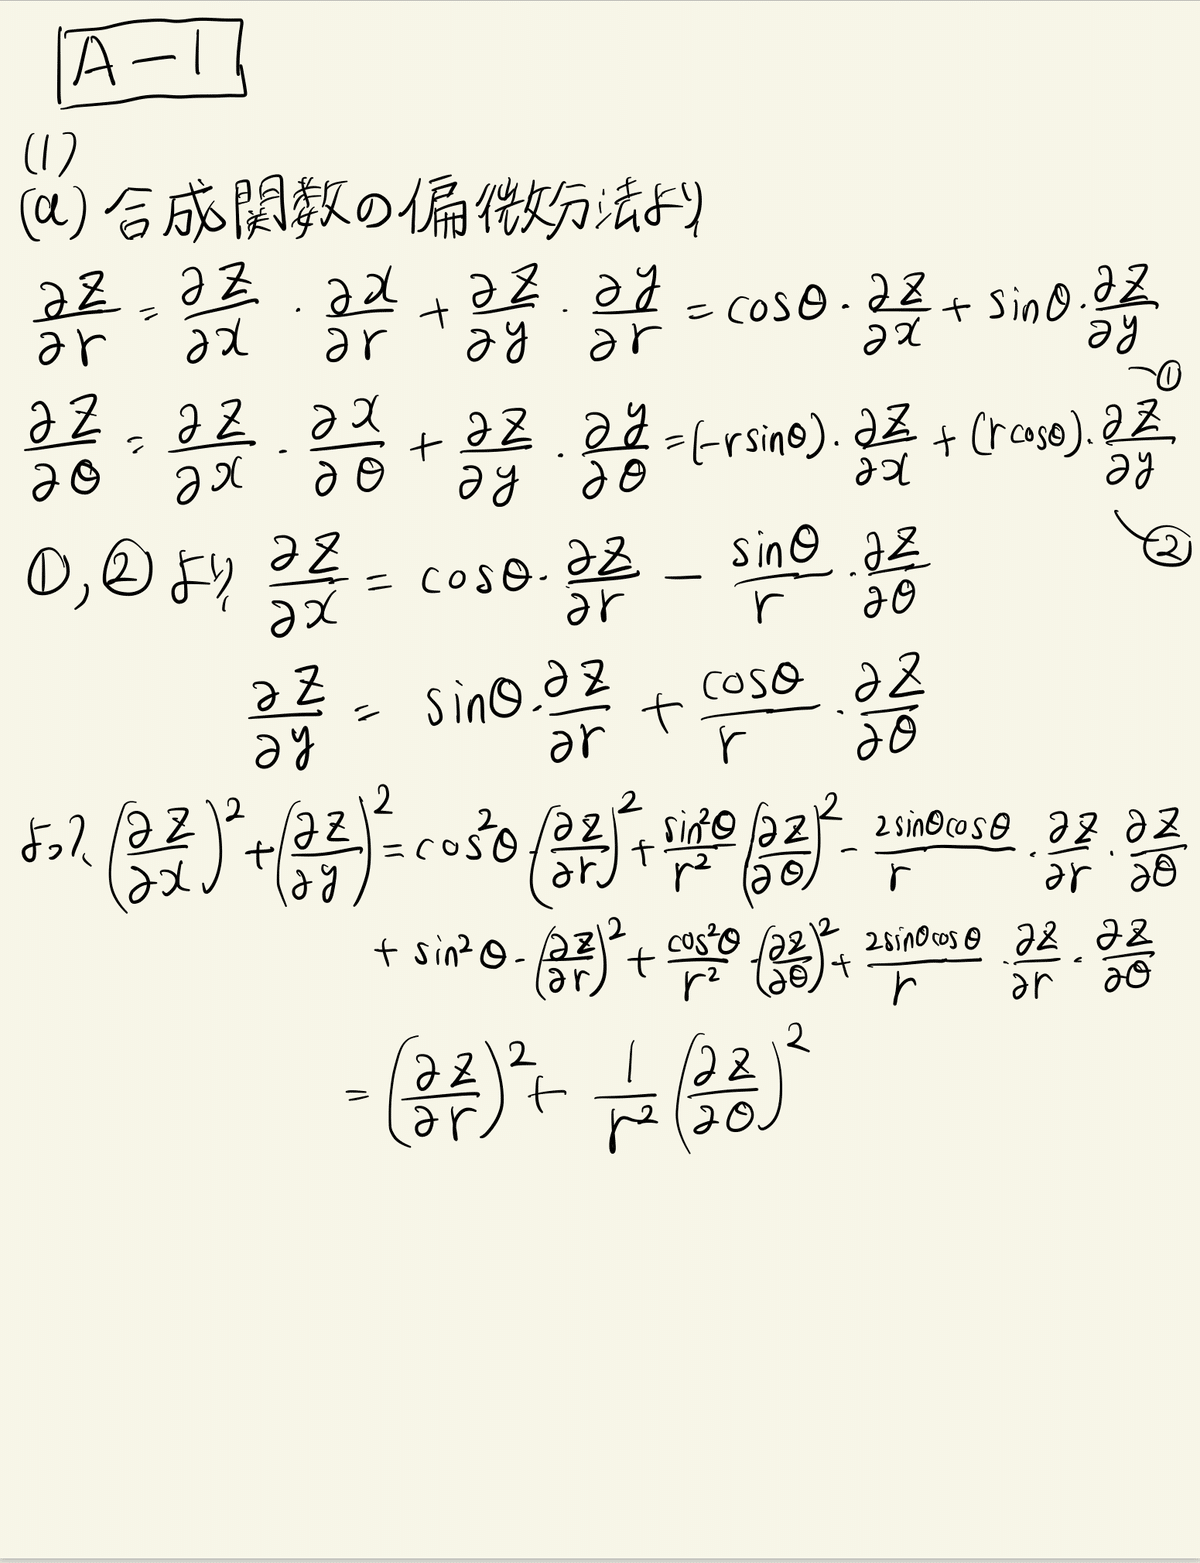 A-1
(1)
(a) 合成関数の偏微分法より
∂z/∂r = ∂z/∂x · ∂x/∂r + ∂z/∂y · ∂y/∂r = cosθ · ∂z/∂x + sinθ · ∂z/∂y ~①
∂z/∂θ = ∂z/∂x · ∂x/∂θ + ∂z/∂y · ∂y/∂θ = (-r sinθ) · ∂z/∂x + (r cosθ) · ∂z/∂y ~②
①, ②より, ∂z/∂x = cosθ · ∂z/∂r − sinθ/r · ∂z/∂θ
∂z/∂y = sinθ · ∂z/∂r + cosθ/r · ∂z/∂θ
よって、(∂z/∂x)² + (∂z/∂y)² = cos²θ · (∂z/∂r)² + sin²θ/r² (∂z/∂θ)² − 2sinθcosθ/r · ∂z/∂r · ∂z/∂θ
+ sin²θ · (∂z/∂r)² + cos²θ/r² · (∂z/∂θ)² + 2sinθcosθ/r · ∂z/∂r · ∂z/∂θ
= (∂z/∂r)² + 1/r² (∂z/∂θ)²